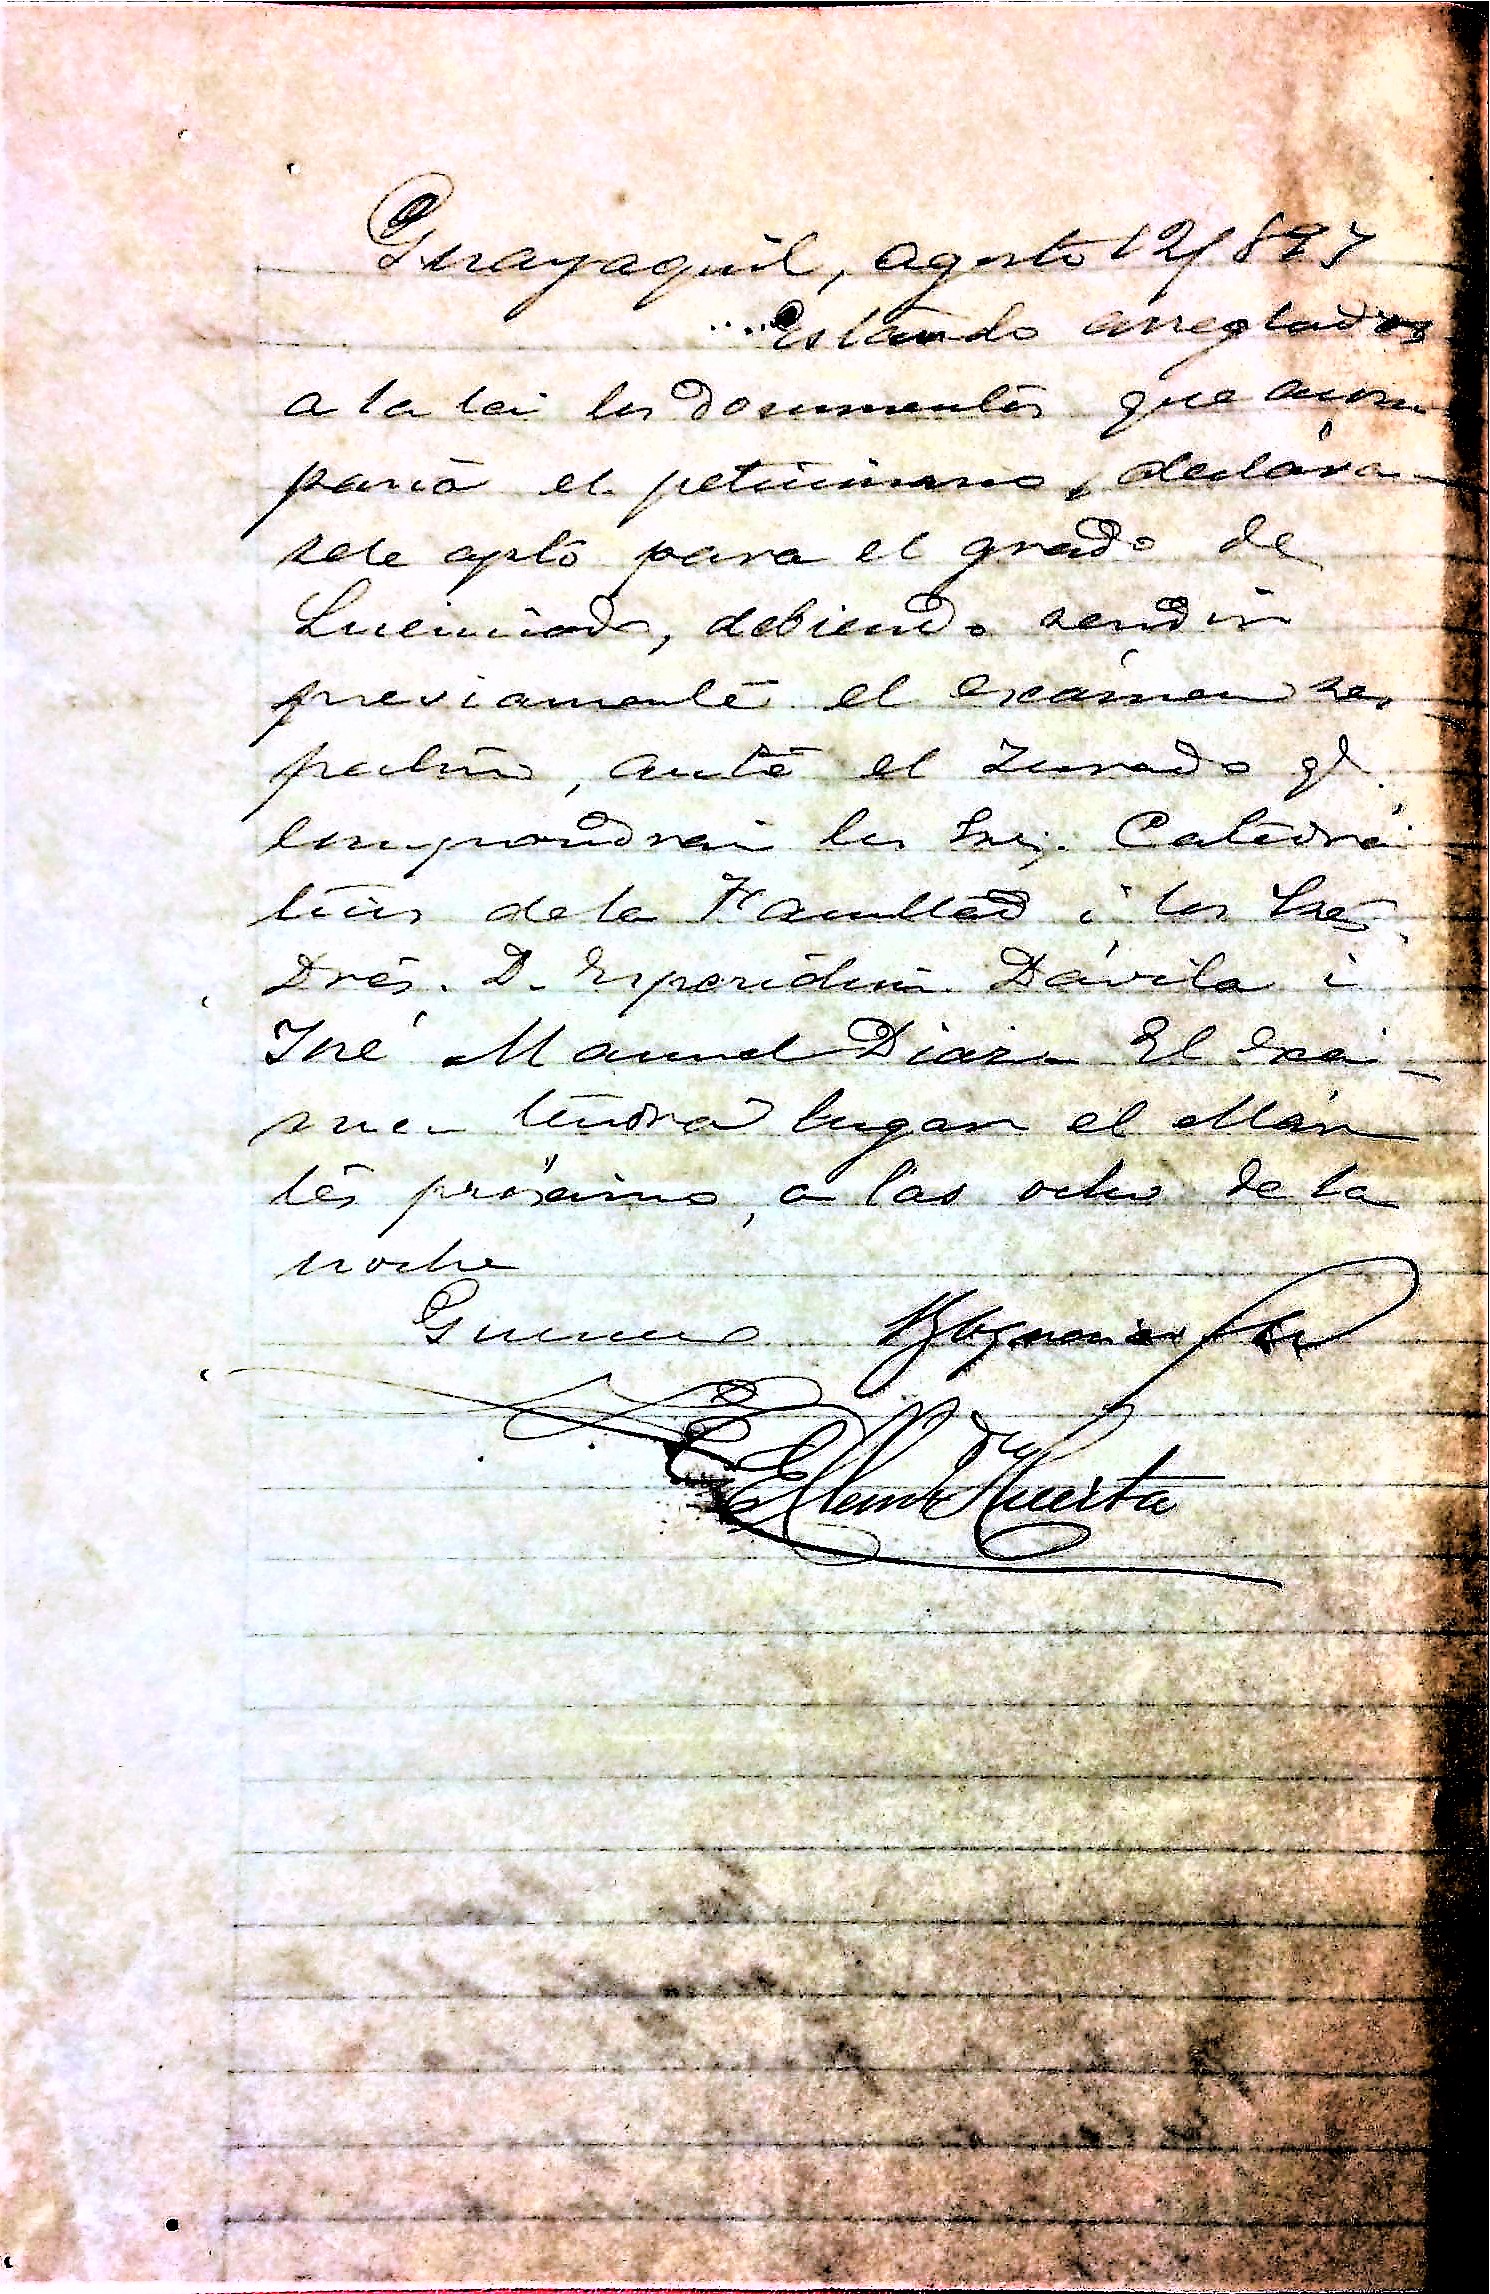 Guayaquil, agosto 12/897
Estando arreglados
a la lei los documentos que acom
paña el peticionario, declára
sele apto para el grado de
Licenciado, debiendo rendir
previamente el exámen res
pectivo, ante el Jurado q̃
compondrán los Sres. Catedrá
ticos de la Facultad i los Sres.
Dres. D. Esperidion Dávila i
José Manuel Diaz. El exá
men tendrá lugar el Már
tes próximo, a las ocho de la
noche
Huerta